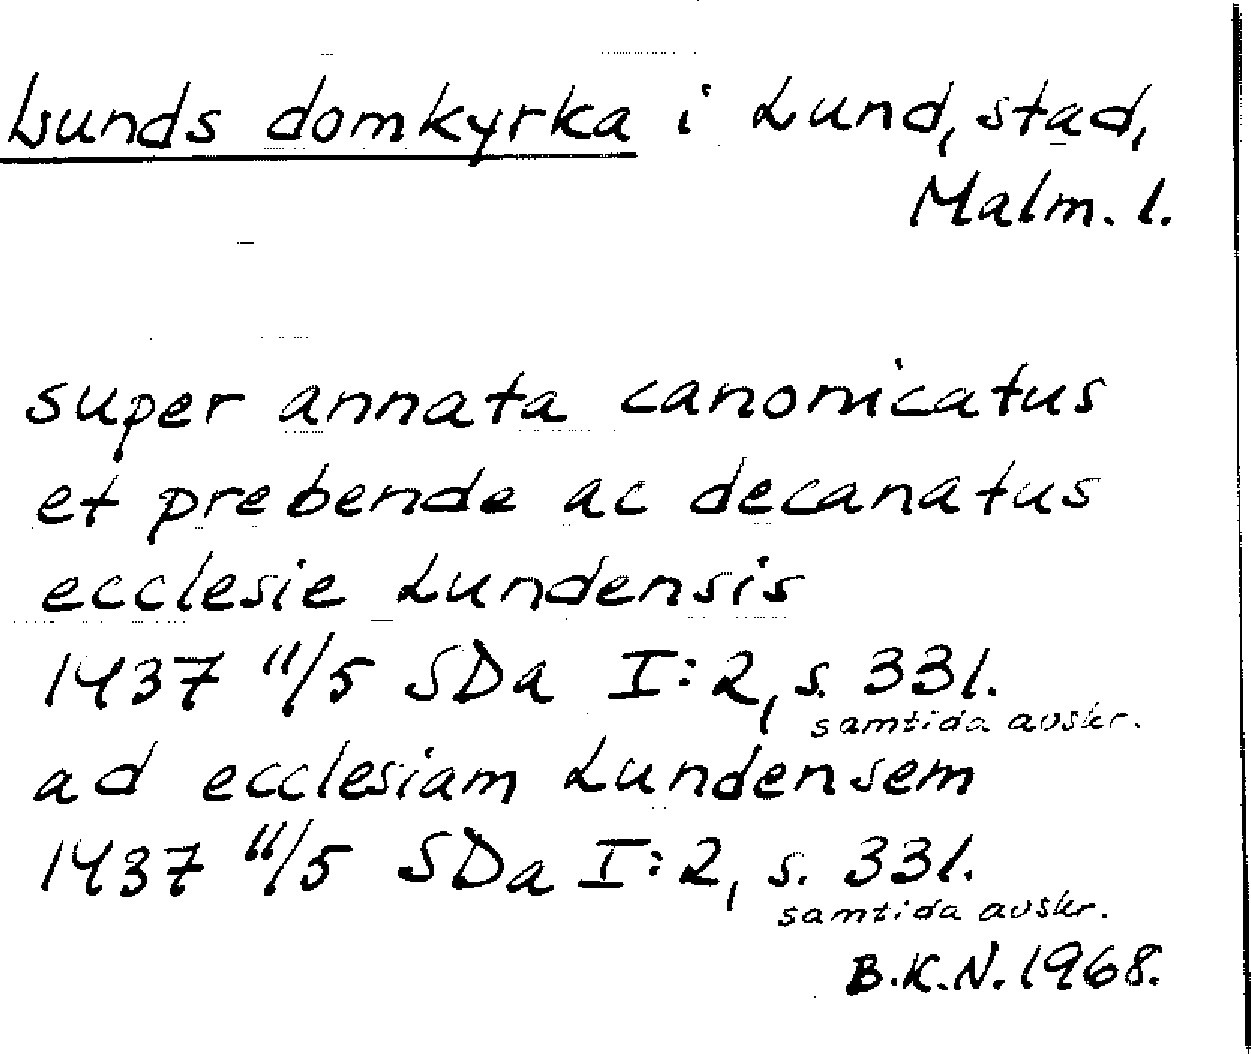 Lunds domkyrka i Lund, stad,
Malm. l.
super annata canonicatus
et prebende ac decanatus
ecclesie Lundensis
1437 11/5 SDa I:2, s. 331.
samtida avskr.
ad ecclesiam Lundensem
1437 11/5 SDa I:2, s. 331.
samtida avskr.
B.K.N. 1968.